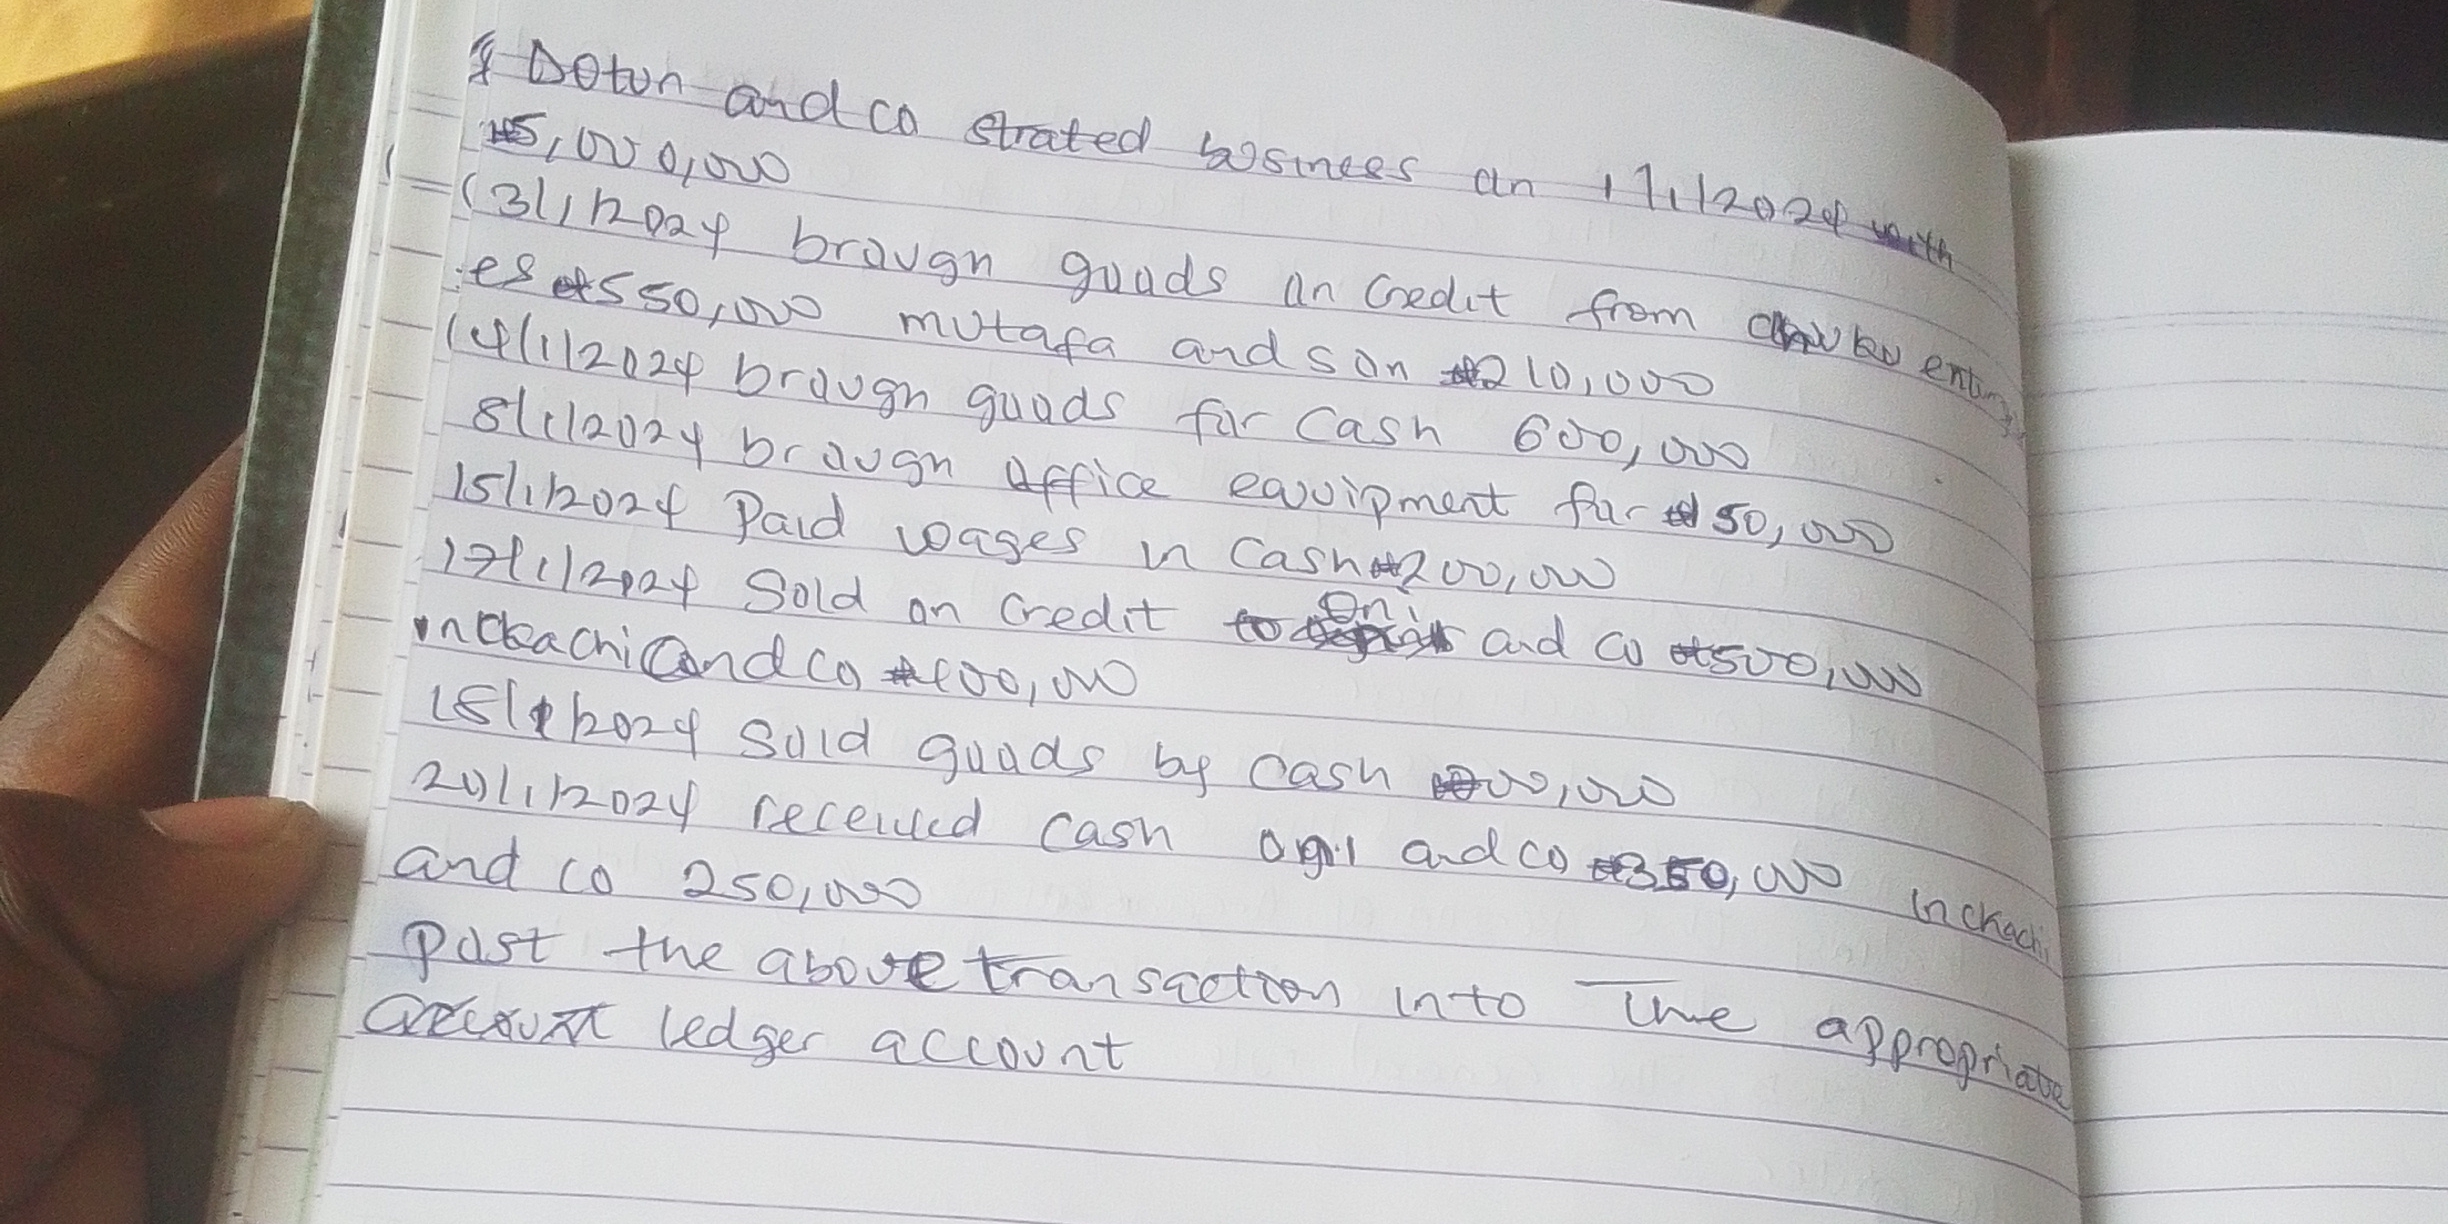 Dotun and co strated business an 1/1/2024 with
₦5,000,000
(3/1/2024 brougn goods on Credit from
es ₦550,000 mutafa and son ₦210,000
(4/1/2024 brougn goods for Cash 600,000
8/1/2024 brougn office equipment for 50,000
15/1/2024 Paid wages in Cash ₦200,000
17/1/2024 Sold on Credit to and co ₦500,000
and co 000,000
2024 Sold goods by Cash
20/1/2024 received Cash and co ₦350,000
and co 250,000
Post the above transaction into The appropriate
ledger account